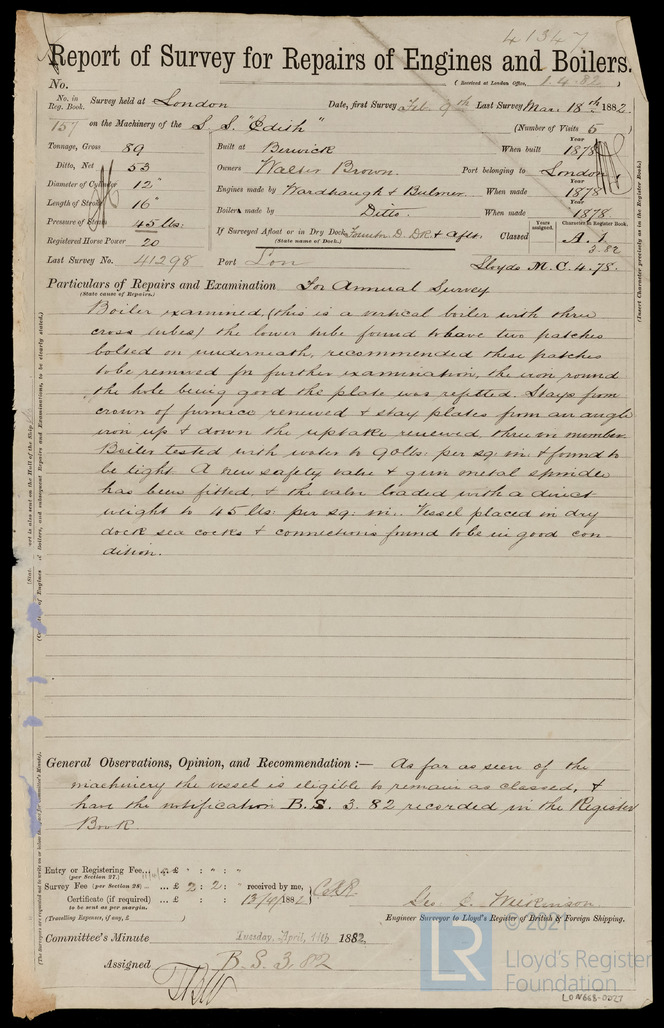 41347
Report of Survey for Repairs of Engines and Boilers.
No.
(Received at London Office, 1.4.82)
No. in Reg. Book. Survey held at London Date, first Survey Feb 9th Last Survey Mar 18th 1882.
157 on the Machinery of the S. S. "Edith" (Number of Visits 5)
Tonnage, Gross 89 Built at Berwick When built Year 1878
Ditto, Net 53 Owners Walter Brown. Port belonging to London
Diameter of Cylinder 12" Engines made by Wardhaugh & Bulmer When made Year 1878
Length of Stroke 16"
Pressure of Steam 45 lbs: Boilers made by Ditto. When made Year 1878
Registered Horse Power 20 If Surveyed Afloat or in Dry Dock D. Dk & Aflt. (State name of Dock.) Classed Years assigned. Character in Register Book. A. 1. 3.82
Last Survey No. 41298 Port Lon Lloyds M. C. 4. 78.
Particulars of Repairs and Examination For Annual Survey
(State cause of Repairs.)
Boiler examined, (this is a vertical boiler with three
cross tubes) the lower tube found to have two patches
bolted on underneath, recommended these patches
to be removed for further examination, the iron round
the hole being good the plate was refitted. Stays from
crown of furnace renewed & stay plates from an angle
iron up & down the uptake renewed three in number.
Boiler tested with water to 90 lbs: per sq: in. & found to
be tight. A new safety valve & gun metal spindle
has been fitted, & the valve loaded with a direct
weight to 45 lbs: per sq: in:. Vessel placed in dry
dock sea cocks & connections found to be in good con-
dition.
General Observations, Opinion, and Recommendation :— As far as seen of the
machinery the vessel is eligible to remain as classed, &
have the notification B.S. 3. 82 recorded in the Register
Book
Entry or Registering Fee... £ " : " : "
(per Section 27.)
Survey Fee (per Section 28) ... £ 2 : 2 : " received by me,
Certificate (if required) ... £ : : 1882
to be sent as per margin.
(Travelling Expenses, if any, £ )
Geo. C. Wilkinson.
Engineer Surveyor to Lloyd's Register of British & Foreign Shipping.
Committee's Minute Tuesday, April, 11th 1882
Assigned B. S. 3. 82
(Insert Character precisely as in the Register Book.)
© 2021
LR
Lloyd's Register
Foundation
LON668-0027